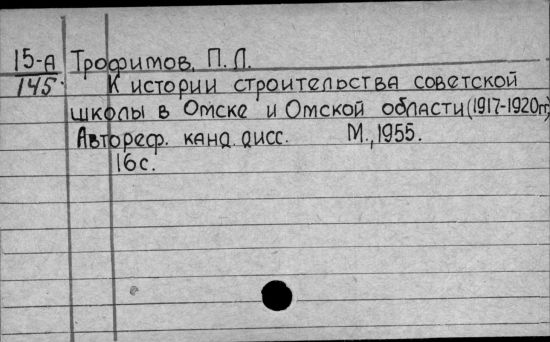 15-А Трофимов, П. Л.
145 К истории строительства советской
школы в Омске и Омской области (1917-1920гг)
Автореф. канд. дисс. М., 1955.
16 с.